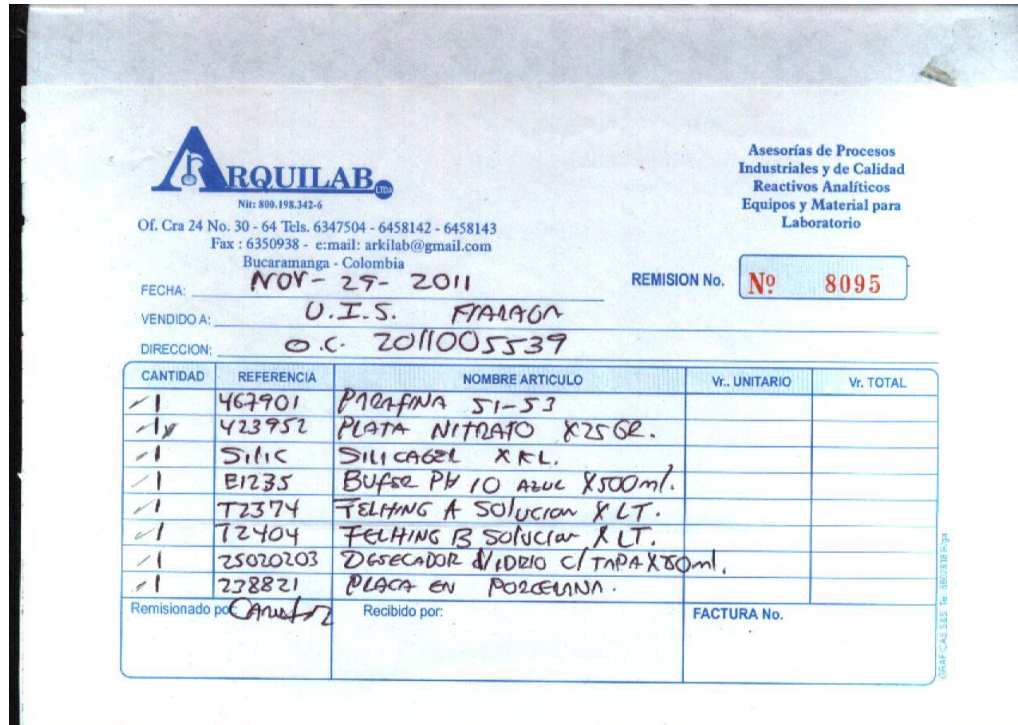 ARQUILAB LTDA
Nit: 800.198.342-6
Of. Cra 24 No. 30 - 64 Tels. 6347504 - 6458142 - 6458143
Fax : 6350938 - e:mail: arkilab@gmail.com
Bucaramanga - Colombia
Asesorías de Procesos
Industriales y de Calidad
Reactivos Analíticos
Equipos y Material para
Laboratorio
REMISION No. Nº 8095
FECHA: NOV- 29- 2011
VENDIDO A: U.I.S.
DIRECCION: O.C. 2011005539
CANTIDAD REFERENCIA NOMBRE ARTICULO Vr., UNITARIO Vr. TOTAL
1 467901 PARAFINA 51-53
1 423952 PLATA NITRATO X25GR.
1 SILIC SILICAGEL X KL.
1 E1235 BUFER PH 10 AZUL X500ml.
1 T2374 FELHING A SOLUCION X LT.
1 T2404 FELHING B SOLUCION X LT.
1 25020203 DESECADOR VIDRIO C/TAPA
1 238821 PLACA EN PORCELANA.
Remisionado por: Recibido por: FACTURA No.
GRAFICAS S&S Tel: